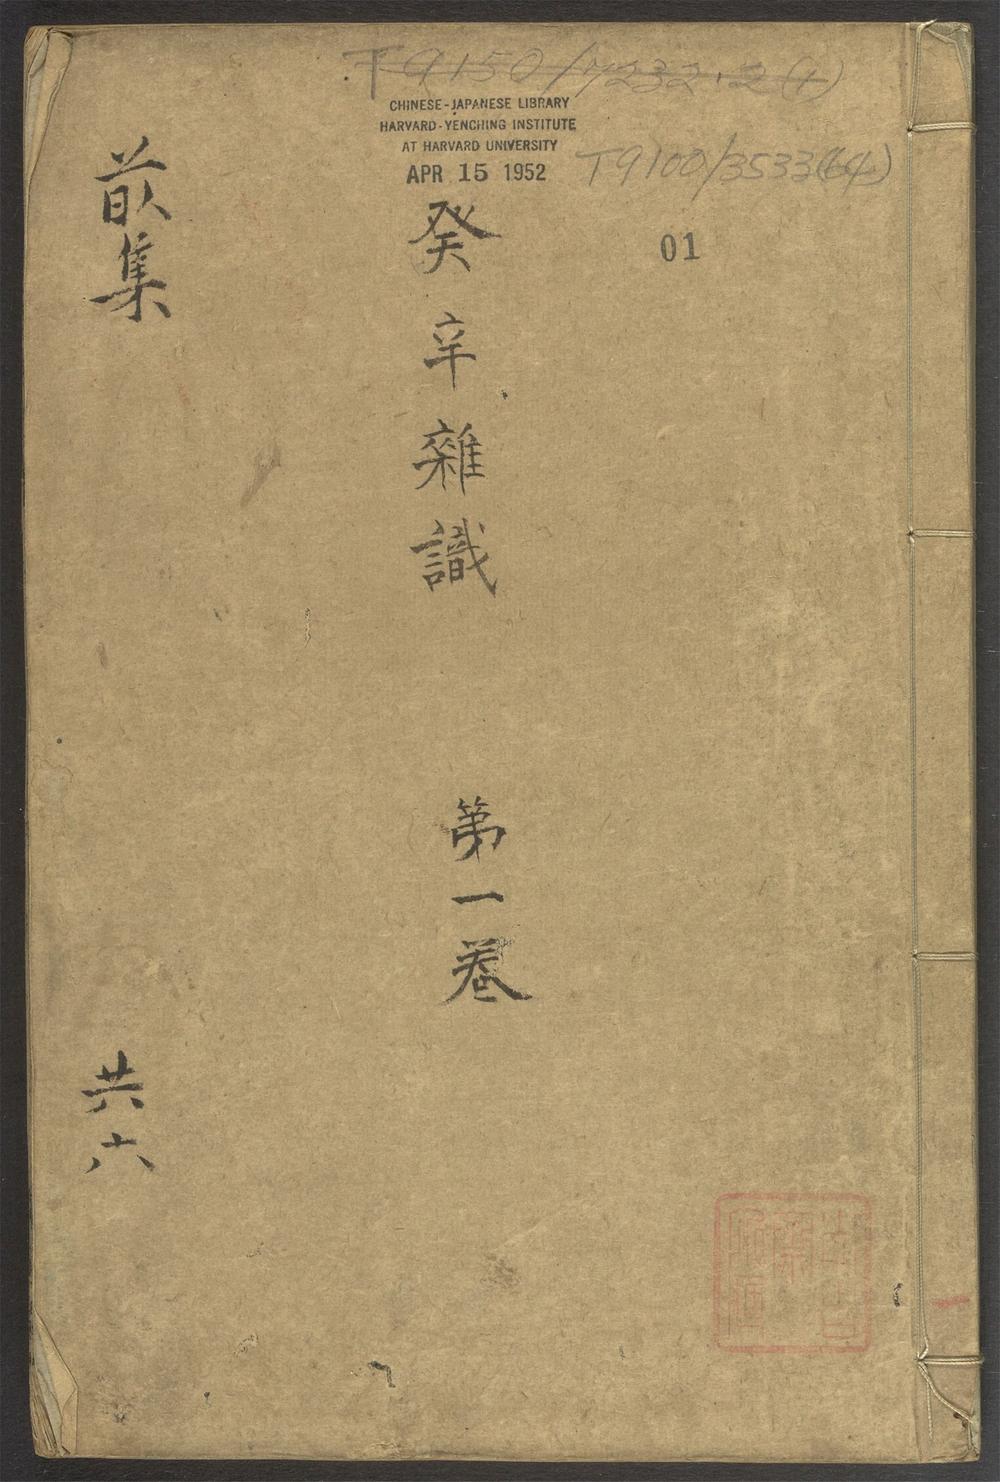 T9100/3533(64)
CHINESE-JAPANESE LIBRARY
HARVARD-YENCHING INSTITUTE
AT HARVARD UNIVERSITY
APR 15 1952
01
癸辛雜識
第一卷
前集
共六